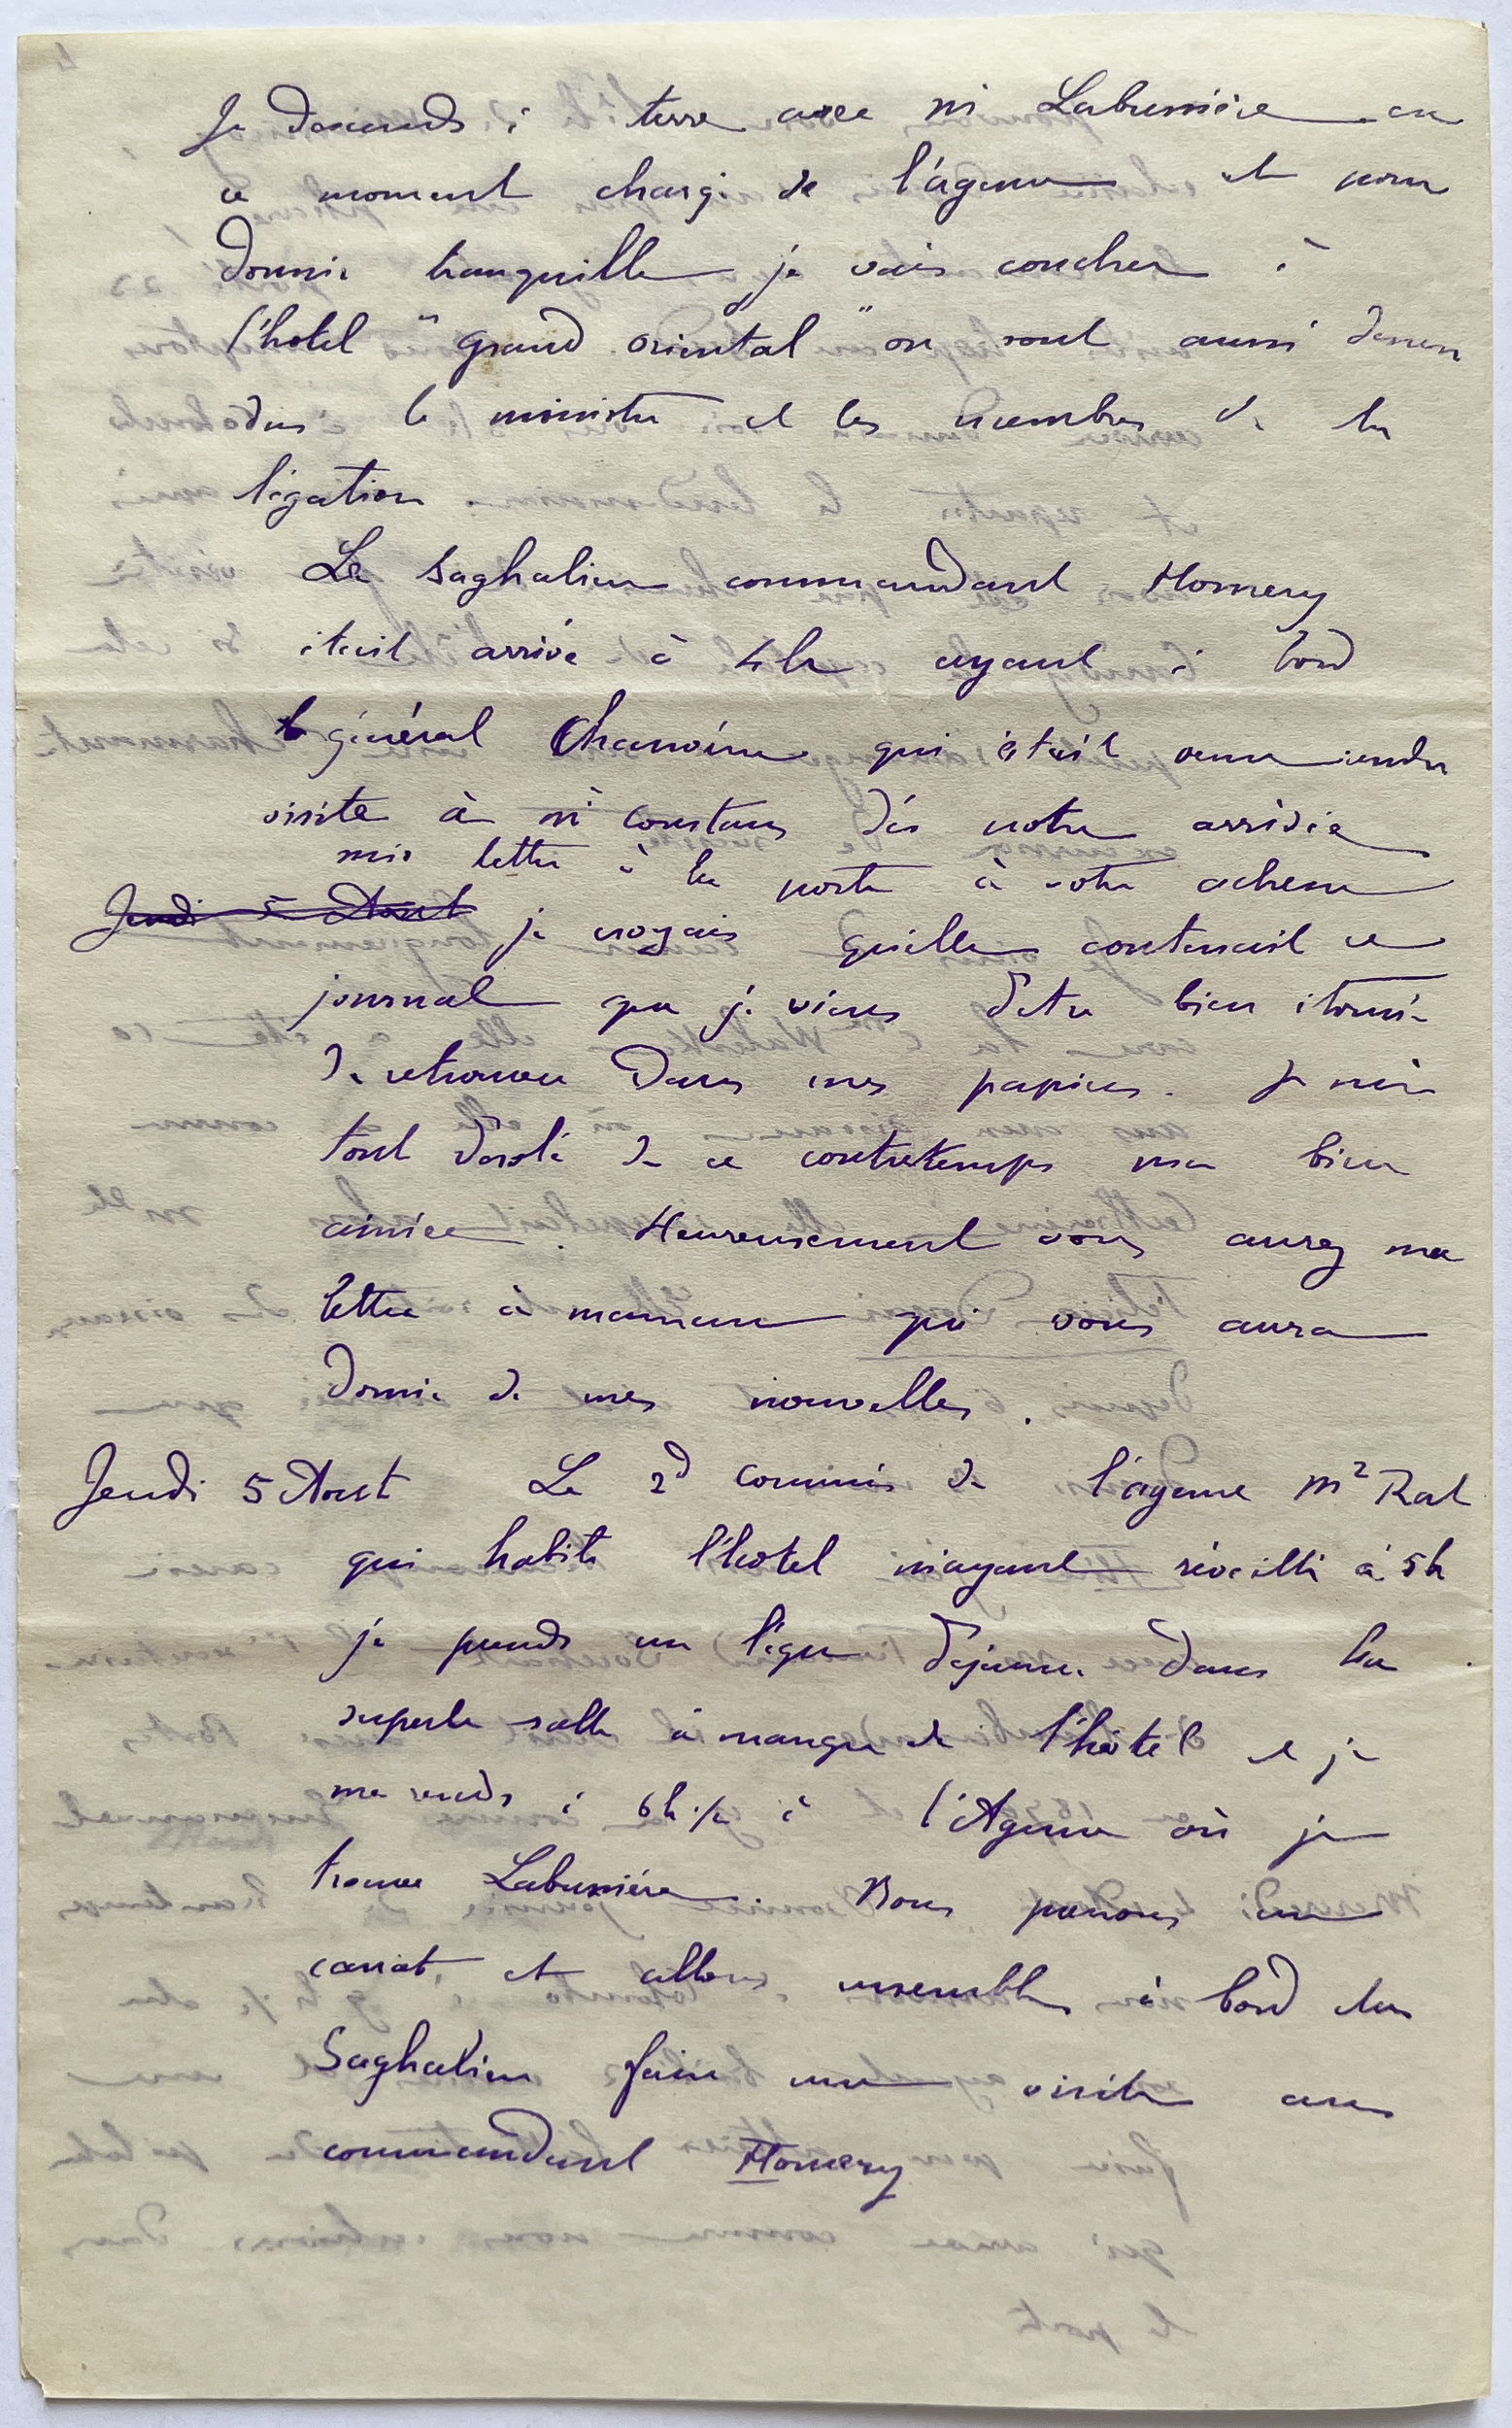 Je descends à terre avec Mr Labussière en
ce moment chargé de l'agence et pour
dormir tranquille je vais coucher à
l'hotel "grand oriental" où sont aussi descen
dus le ministre et les membres de la
légation.
Le Saghalien commandant Homery
était arrivé à 4h ayant à bord
le général Chanoine qui était venu rendre
visite à Mr Constans dès notre arrivée
mis lettre à la poste à votre adresse
<del>Jeudi 5 Aout</del> je croyais qu'elle contenait ce
journal que je viens d'etre bien étonné
de retrouver dans mes papiers. Je suis
tout désolé de ce contretemps ma bien
aimée. Heureusement vous aurez ma
lettre à maman qui vous aura
donné de mes nouvelles.
Jeudi 5 Aout Le 2d commis de l'agence Mr Rat
qui habite l'hotel m'ayant réveillé à 5h
je prends un léger déjeuner dans la
superbe salle à manger de l'hôtel et je
me rends à 6h ½ à l'Agence où je
trouve Labussière. Nous prenons un
canot et allons ensemble à bord du
Saghalien faire une visite au
commandant Homery